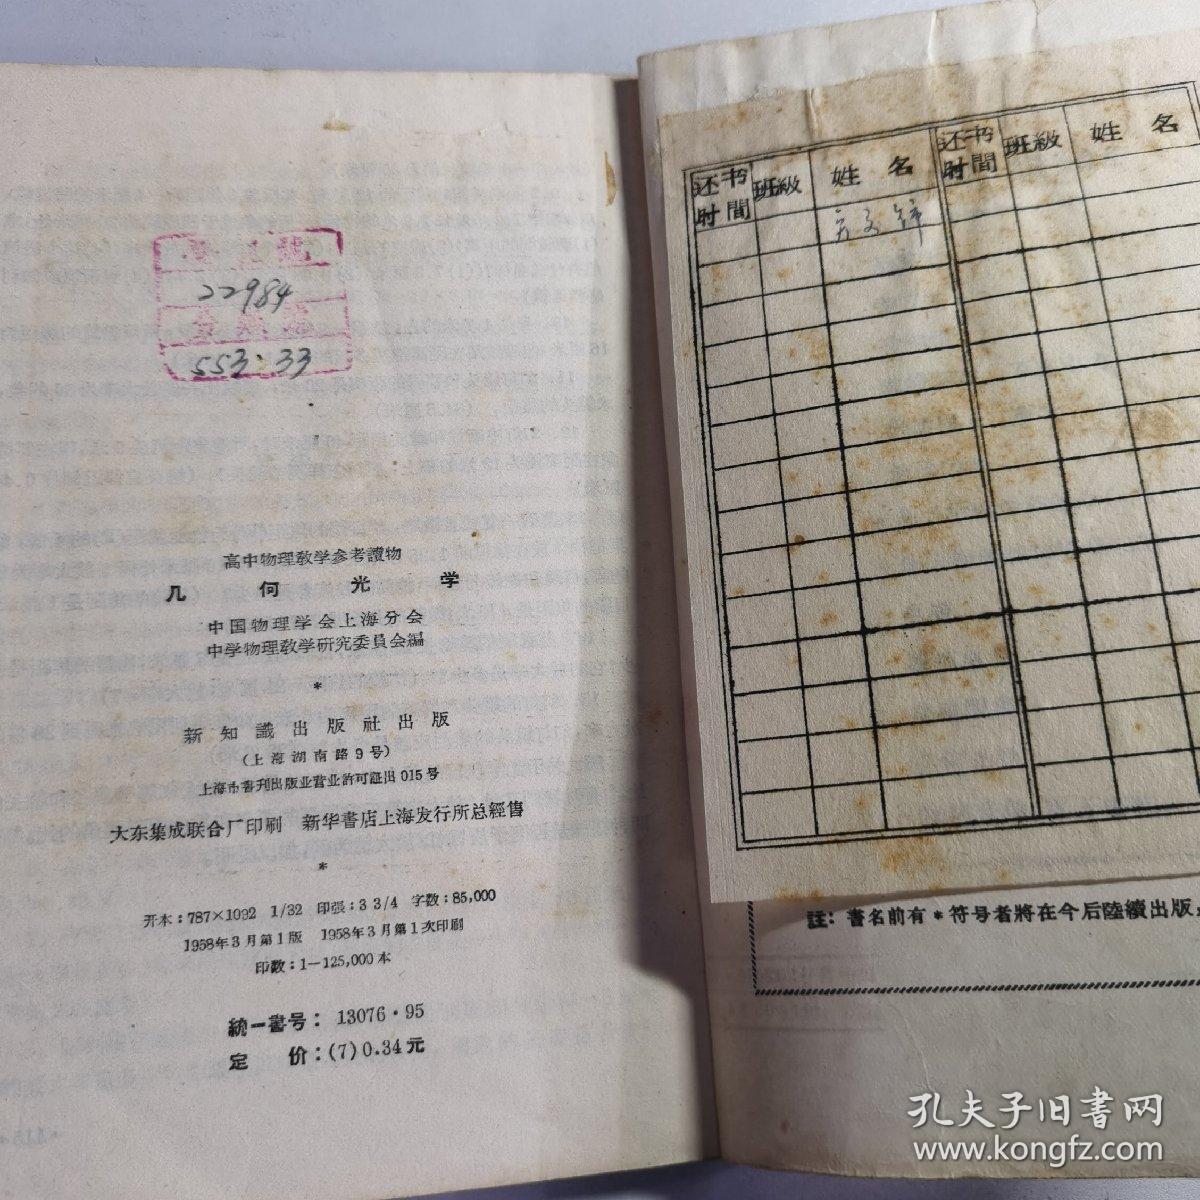 22984
553:33
高中物理教学参考讀物
几何光学
中国物理学会上海分会
中学物理教学研究委員会編
*
新知識出版社出版
(上海湖南路9号)
上海市書刊出版业营业許可証出015号
大东集成联合厂印刷 新华書店上海发行所总經售
*
开本:787×1092 1/32 印張:3 3/4 字数:85,000
1958年3月第1版 1958年3月第1次印刷
印数:1—125,000本
統一書号:13076·95
定价:(7)0.34元
还书时間 班級 姓名 还书时間 班級 姓名
註:書名前有*符号者將在今后陸續出版
孔夫子旧書网
www.kongfz.com